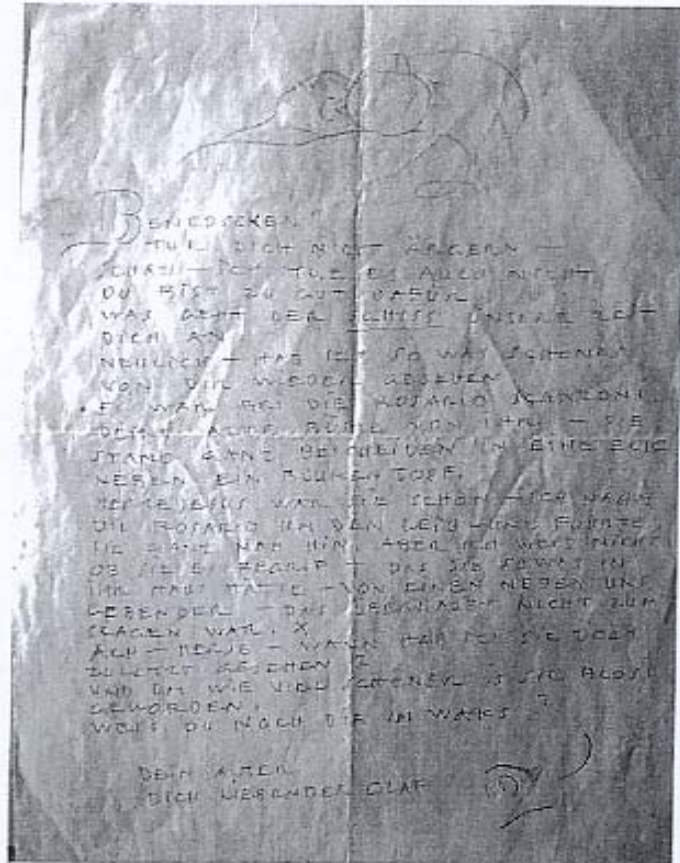 BENEDICKEN!
TUE DICH NICHT ÄRGERN –
SCHATZ – ICH TUE ES AUCH NICHT
DU BIST ZU GUT DAFÜR
WAS GEHT DER SCHISS UNSERE ZEIT
DICH AN
NEULICH – HAB ICH SO WAS SCHÖNES
VON DIR WIEDER GESEHEN
ES WAR BEI DIE ROSARIO
ALTE VON IHNE – SIE
STAND GANZ BESCHEIDEN IN EINE ECKE
NEBEN EIN BLUMENTOPF.
WAR SIE SCHÖN – ICH NAHM
DIE ROSARIO UM DEN LEIB UND FÜHRTE
SIE GANZ NAH HIN, ABER ICH WEIS NICHT
OB SIE BEGRIF – DAS SIE SOWAS IN
IHR HAUS HATTE – VON EINEN NEBEN UNS
LEBENDER – DAS NICHT ZUM
SAGEN WAR. X
ACH – – WANN HAB ICH SIE DOCH
ZULETZT GESEHEN?
UND WIE VIEL SCHÖNER IS SIE BLOSS
GEWORDEN.
WEIS DU NOCH DIE IM WAKS?
DEIN ALTER
DICH LIEBENDER OLAF